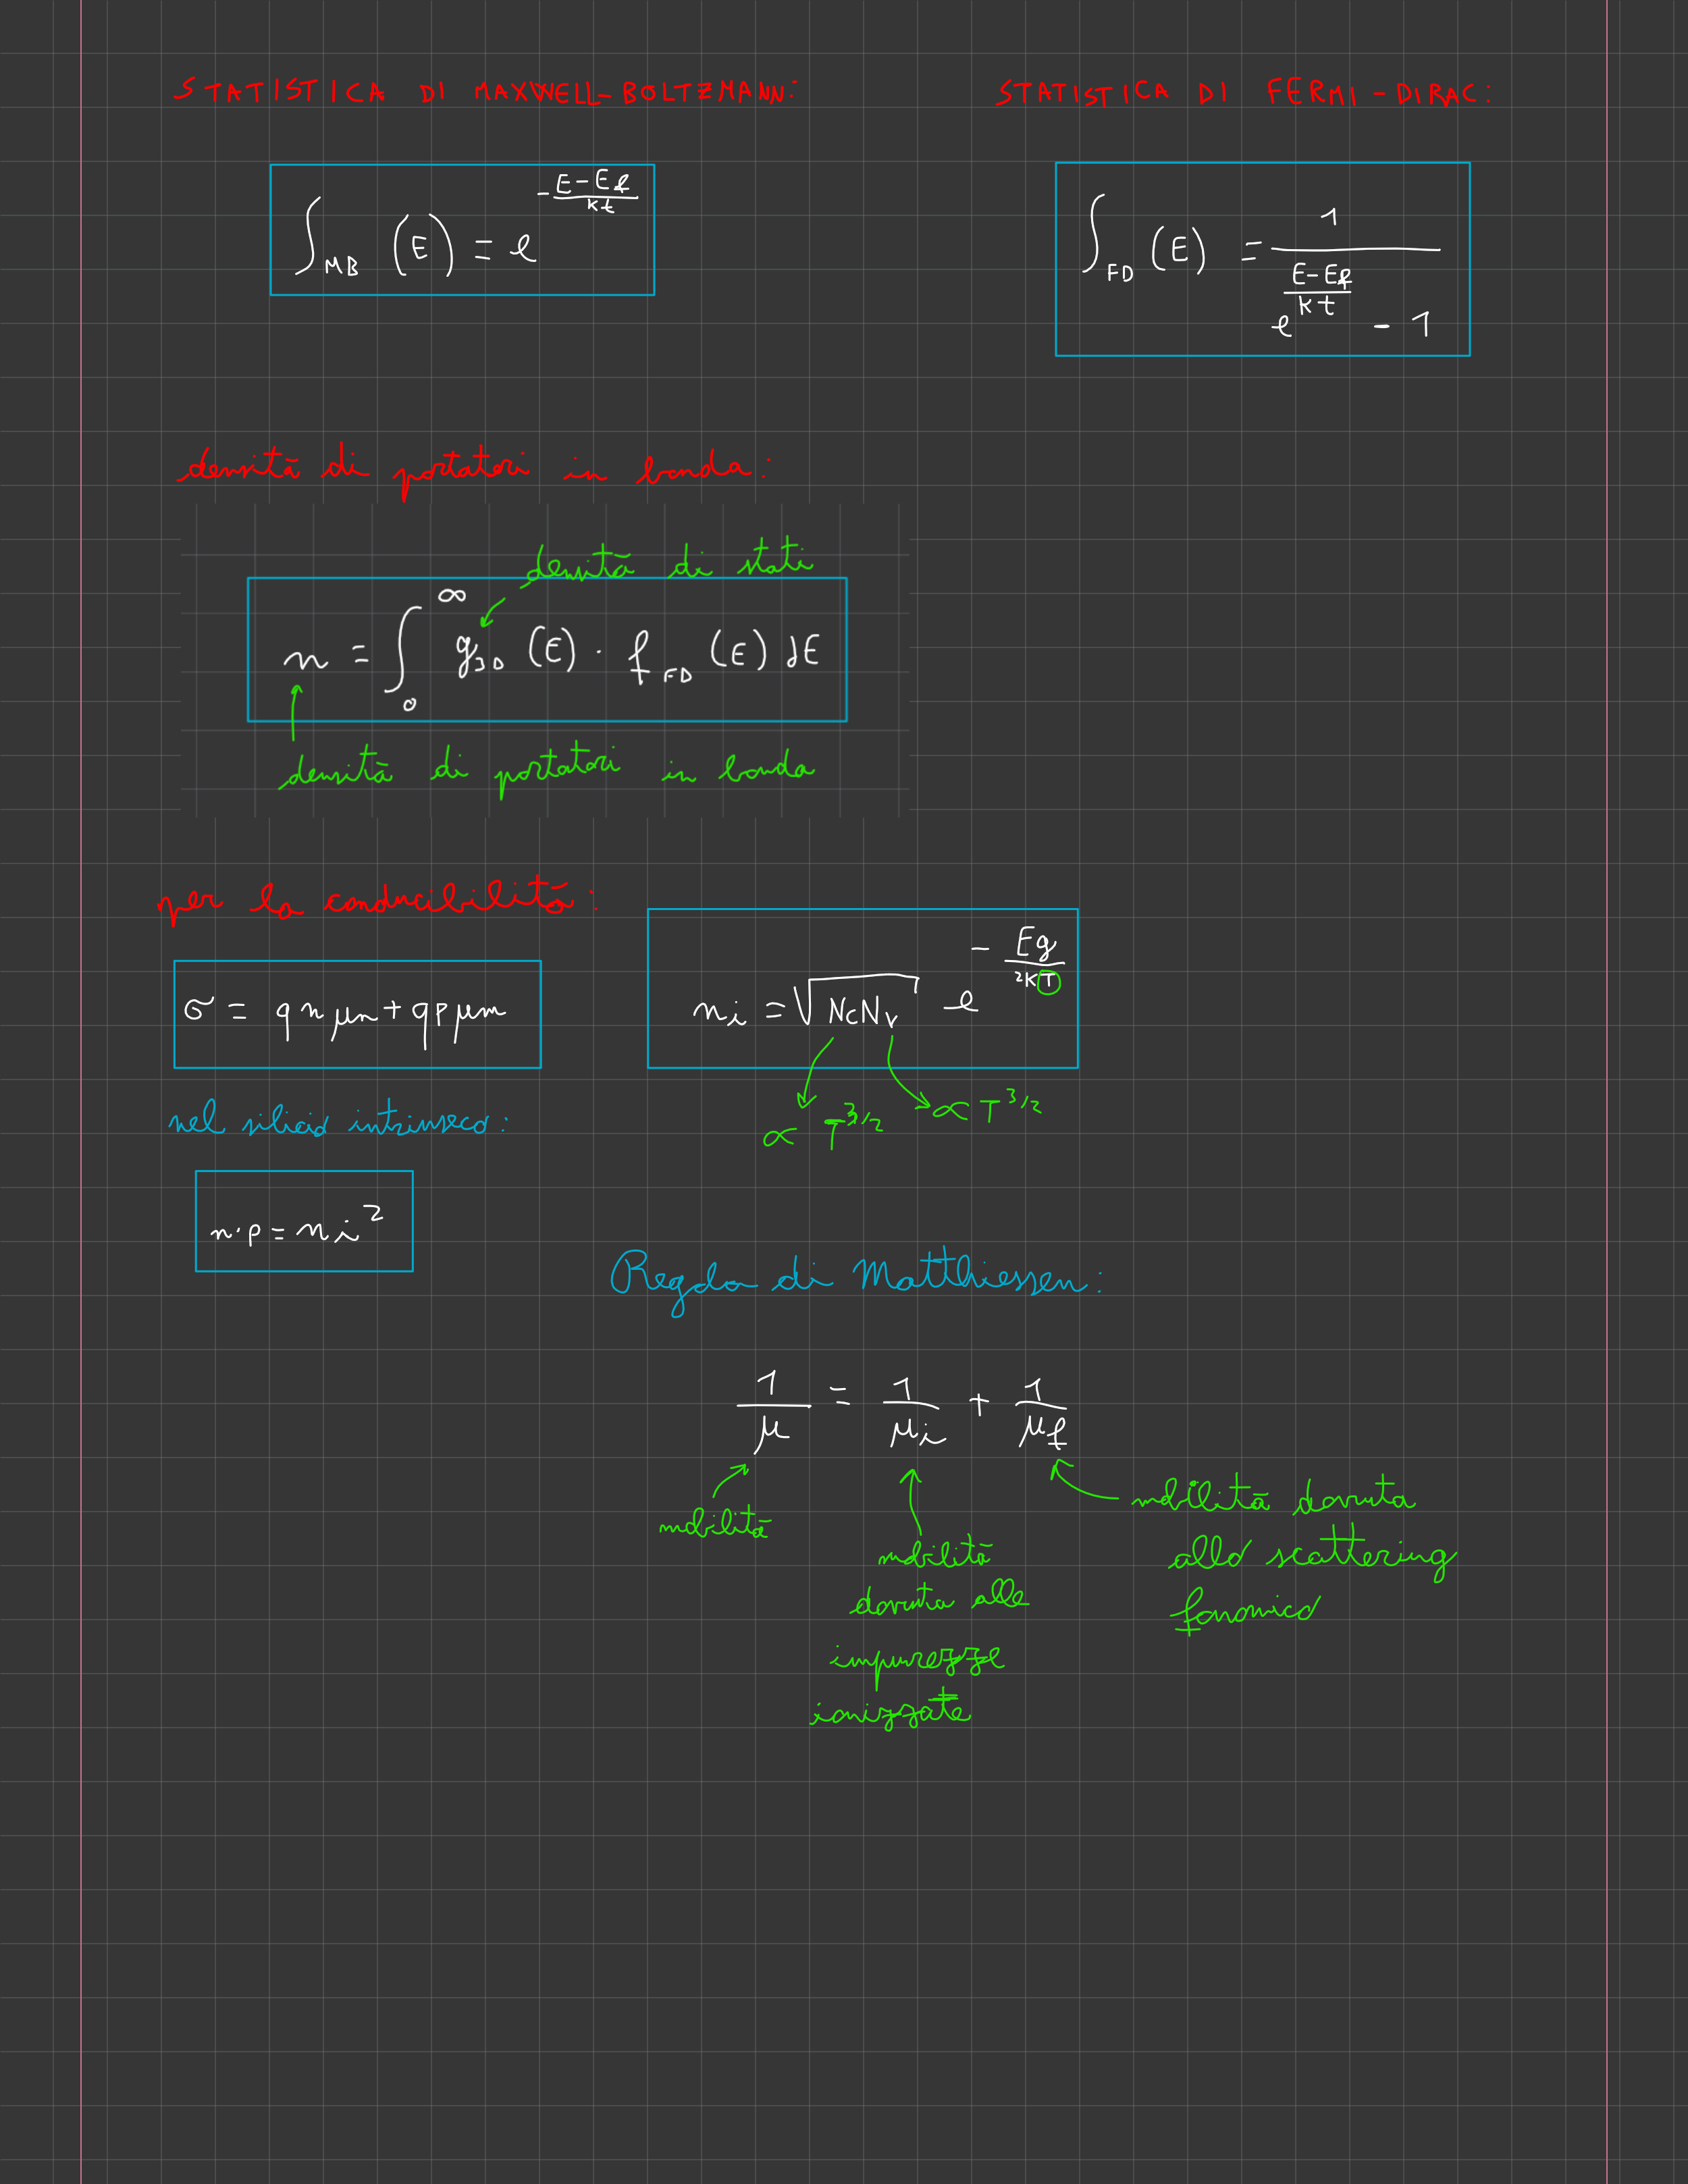 STATISTICA DI MAXWELL-BOLTZMANN:
∫_MB (E) = e^(-(E-Ef)/(kt))
STATISTICA DI FERMI-DIRAC:
∫_FD (E) = 1/(e^((E-Ef)/(kt)) - 1)
densità di portatori in banda:
densità di stati
n = ∫_0^∞ g_3D (E) · f_FD (E) dE
densità di portatori in banda
per la conducibilità:
σ = q n μn + q p μn
ni = √(NcNv) e^(-Eg/(2KT))
∝ T^3/2
∝ T^3/2
nel silicio intinseco:
n·p = ni²
Regola di Matthiessen:
1/μ = 1/μi + 1/μf
mobilità
mobilità
dovuta alle
impurezze
ionizzate
mobilità dovuta
allo scattering
fononico